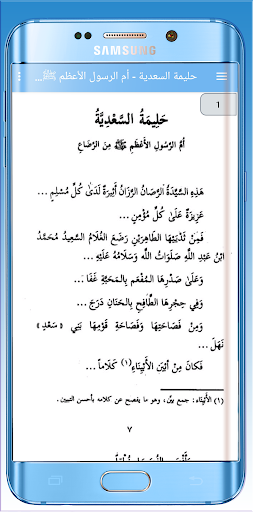 SAMSUNG
حليمة السعدية - أم الرسول الأعظم ﷺ...
1
حَلِيمَةُ السَّعْدِيَّةُ
أُمُّ الرَّسُولِ الأَعْظَمِ ﷺ مِنَ الرَّضَاعِ
هَذِهِ السَّيِّدَةُ الرَّصَانُ الرَّزَانُ أَثِيرَةٌ لَدَىٰ كُلِّ مُسْلِمٍ ...
عَزِيزَةٌ عَلَىٰ كُلِّ مُؤْمِنٍ ...
فَمِنْ ثَدْيَيْهَا الطَّاهِرَيْنِ رَضَعَ الْغُلَامُ السَّعِيدُ مُحَمَّدُ
ابْنُ عَبْدِ اللَّهِ صَلَوَاتُ اللَّهِ وَسَلَامُهُ عَلَيْهِ ...
وَعَلَىٰ صَدْرِهَا الْمُفْعَمِ بِالْمَحَبَّةِ غَفَا ...
وَفِي حِجْرِهَا الطَّافِحِ بِالْحَنَانِ دَرَجَ ...
وَمِنْ فَصَاحَتِهَا وَفَصَاحَةِ قَوْمِهَا بَنِي «سَعْدٍ»
نَهَلَ ...
فَكَانَ مِنْ أَبْيَنِ الأَبْيِنَاءِ (١) كَلَاماً ...
(١) الأَبْيِنَاء: جمع بيِّن، وهو ما يفصح عن كلامه بأحسن التبيين.
٧